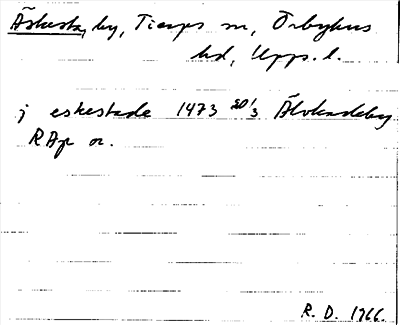 Äskesta, by, Tierps sn, Örbyhus
hd, Upps. l.
j eskestade 1473 20/3 Älvkarleby
RAp or.
R. D. 1966.